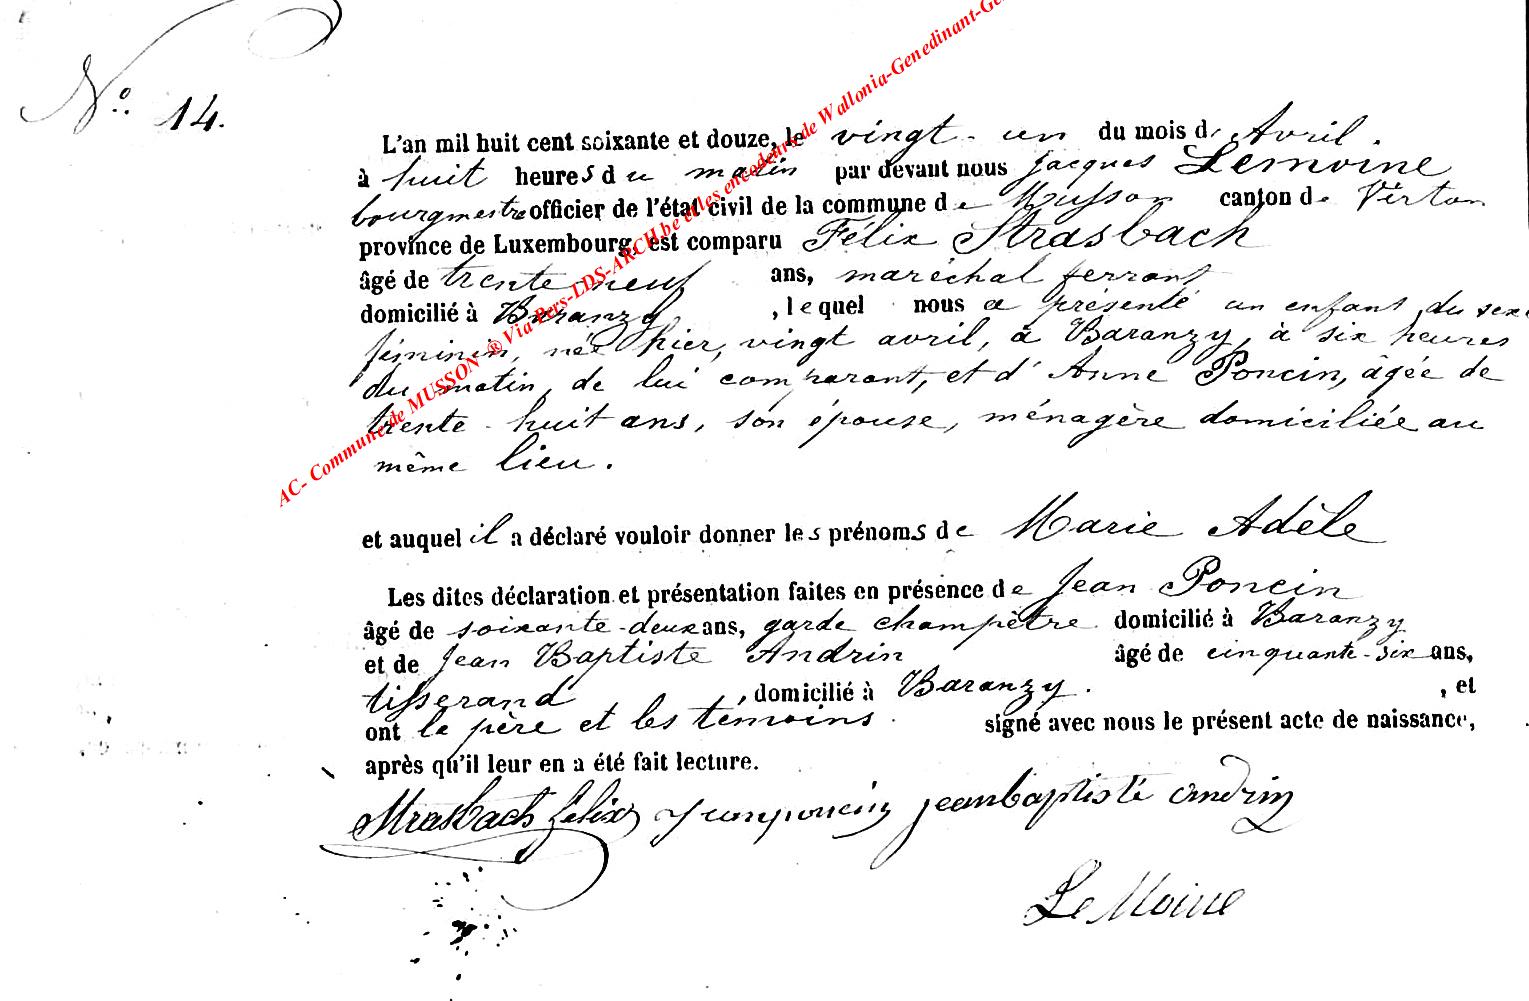 N° 14.
L'an mil huit cent soixante et douze, le vingt-un du mois d' Avril.
à huit heures du matin par devant nous Jacques Lemoine
bourgmestre officier de l'état civil de la commune de Musson canton de Virton
province de Luxembourg, est comparu Félix Strasbach
âgé de trente-neuf ans, maréchal ferrant
domicilié à Baranzy, lequel nous a présenté un enfant du sexe
féminin, née hier, vingt avril, à Baranzy, à six heures
du matin, de lui comparant, et d'Anne Poncin, âgée de
trente-huit ans, son épouse, ménagère domiciliée au
même lieu.
et auquel il a déclaré vouloir donner les prénoms de Marie Adèle
Les dites déclaration et présentation faites en présence de Jean Poncin
âgé de soixante-deux ans, garde champêtre domicilié à Baranzy
et de Jean Baptiste Andrin âgé de cinquante-six ans,
tisserand, domicilié à Baranzy. , et
ont le père et les témoins signé avec nous le présent acte de naissance,
après qu'il leur en a été fait lecture.
Strasbach félix Jeanponcin jeanbaptiste andrin
Le Moine
AC- Commune de MUSSON ® Via Pers-LDS-ARCH.be et les encodeurs de Wallonia-Genedinant-Ge